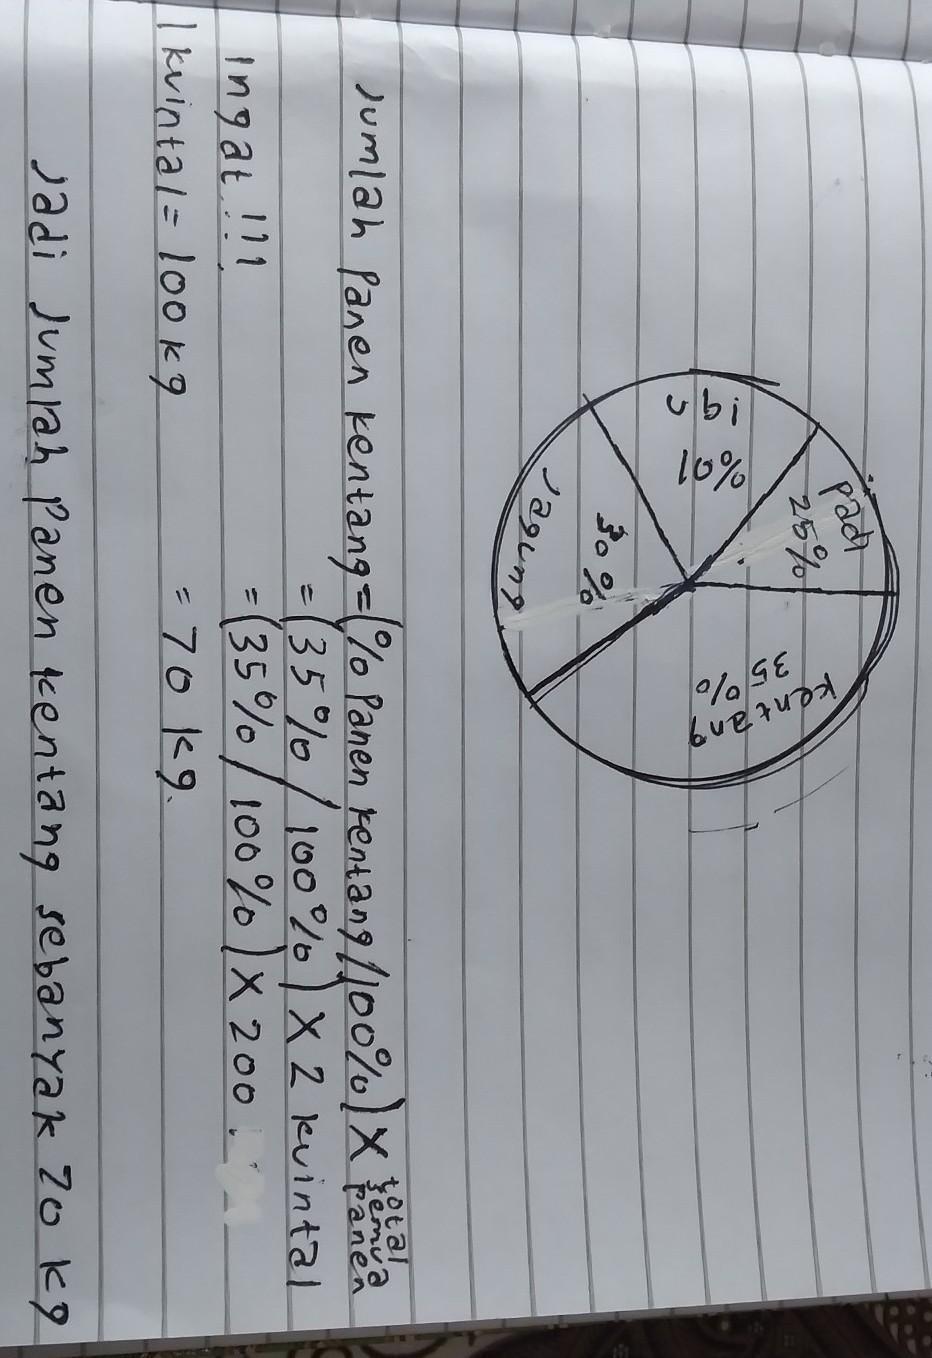 Padi
25%
ubi
10%
Jagung
30%
kentang
35
%
Jumlah Panen kentang = (% Panen kentang / 100%) X total semua Panen
= (35% / 100%) X 2 kvintal
Ingat !!!
= (35% / 100%) X 200
1 kvintal = 100 kg
= 70 kg.
Jadi Jumlah Panen kentang sebanyak 70 kg